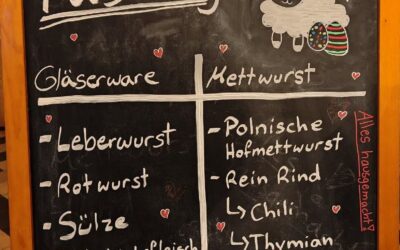 Gläserware
- Leberwurst
- Rotwurst
- Sülze
Mettwurst
- Polnische
Hofmettwurst
- Rein Rind
↳ Chili
↳ Thymian
Alles hausgemacht!